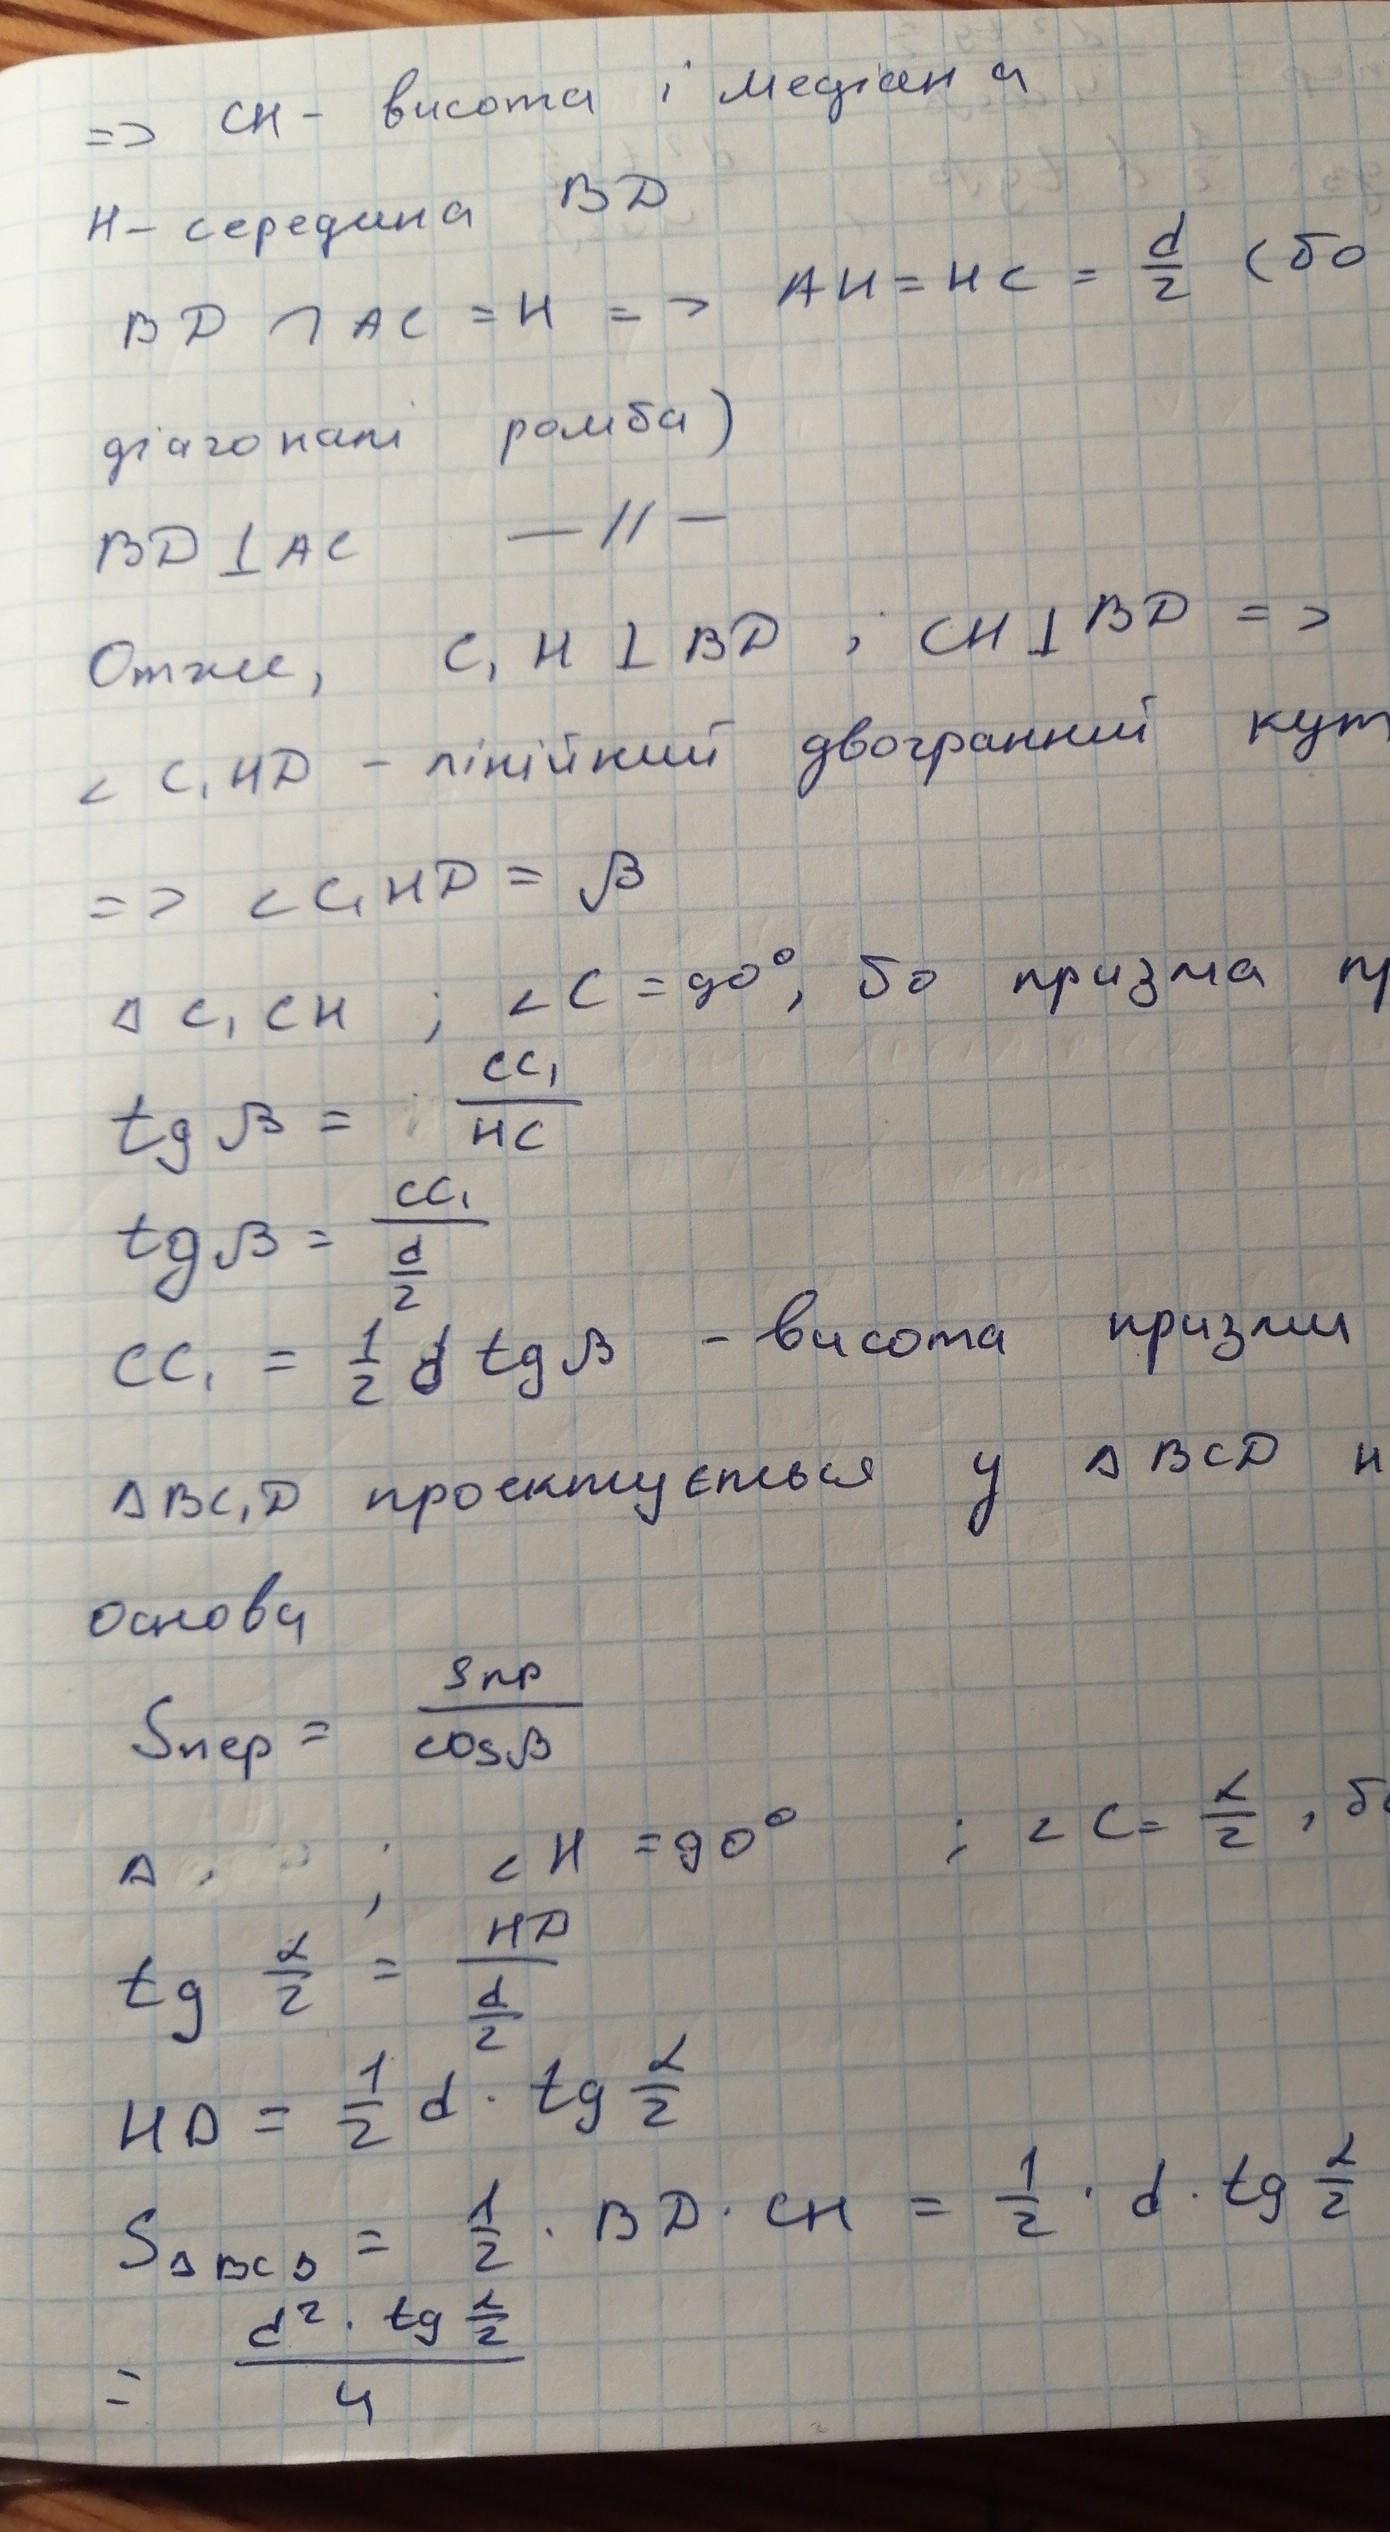 => CH - висота і медіана
H - середина BD
BD ∩ AC = H => AH = HC = d/2 (бо
діагоналі ромба)
BD ⊥ AC — // —
Отже, C₁H ⊥ BD ; CH ⊥ BD =>
∠ C₁HD - лінійний двогранний кут
=> ∠C₁HD = β
Δ C₁CH ; ∠C = 90°, бо призма пр
tg β = CC₁/HC
tg β = CC₁/(d/2)
CC₁ = 1/2 d tg β - висота призми
Δ BC₁D проектується у Δ BCD н
основи
Sпер = Sпр/cosβ
Δ ; ∠H = 90° ; ∠C = α/2 , бо
tg α/2 = HD/(d/2)
HD = 1/2 d · tg α/2
SΔBCD = 1/2 · BD · CH = 1/2 · d · tg α/2
= (d² · tg α/2)/4